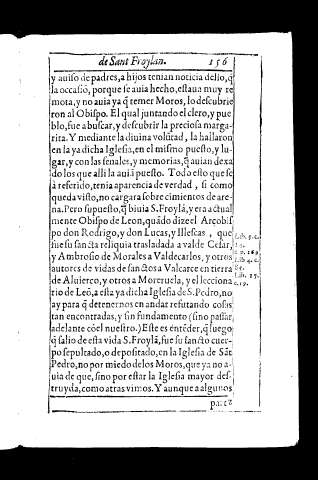 de Sant Froylan. 156
y auiso de padres, a hijos tenian noticia dello, q̃
la occasiõ, porque se auia hecho, estaua muy re
mota, y no auia ya q̃ temer Moros, lo descubrie
ron al Obispo. El qual juntando el clero, y pue
blo, fue a buscar, y descubrir la preciosa marga-
rita. Y mediante la diuina volũtad, la hallaron
en la ya dicha Iglesia, en el mismo puesto, y lu-
gar, y con las señales, y memorias, q̃ auian dexa
do los que alli la auiã puesto. Todo esto que se
à referido, tenia aparencia de verdad, si como
queda visto, no cargara sobre cimientos de are
na. Pero supuesto, q̃ biuia S. Froylã, y era actual
mente Obispo de Leon, quãdo dize el Arçobis
po don Rodrigo, y don Lucas, y Illescas, que
fue su sancta reliquia trasladada a valde Cesar,
y Ambrosio de Morales a Valdecarlos, y otros
autores de vidas de sanctos a Valcarce en tierra
de Aluierço, y otros a Moreruela, y el lecciona
rio de Leõ, a esta ya dicha Iglesia de S. Pedro, no
ay para q̃ detenernos en andar refutando cosas
tan encontradas, y sin fundamento (sino passar
adelante cõel nuestro.) Este es entẽder, q̃ luego
q̃ salio de esta vida S. Froylã, fue su sancto cuer-
po sepultado, o depositado, en la Iglesia de Sãt
Pedro, no por miedo de los Moros, que ya no a-
uia de que, sino por estar la Iglesia mayor des-
truyda, como atras vimos. Y aunque a algunos
pare z
Lib. 5. c.
c. 269.
Lib. 4. c.
Lib. 15.
c. 19.